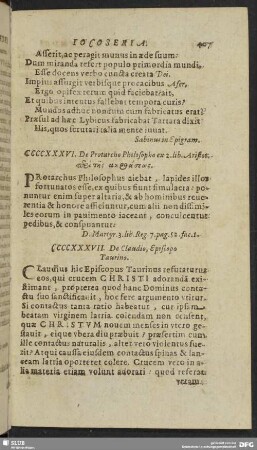 IOCOSERIA. 407
Asserit, ac peragit nutus in æde suum:
Dum miranda refert populo primordia mundi,
Esse docens verbo cuncta creata Dei.
Impius assurgit verbisque procacibus Afer,
Ergo opifex rerum quid faciebat, ait,
Et quibus intentus fallebat tempora curis?
Mundus adhuc nondum cum fabricatus erat?
Præsul ad hæc Lybicus fabricabat Tartara dixit
His, quos scrutari talia mente iuvat.
Sabinus in Epigram.
CCCCXXXVI. De Protarcho Philosopho ex 2. lib. Aristot.
PRotarchus Philosophus aiebat, lapides illos
fortunatos esse, ex quibus fiunt simulacra, ponuntur
enim super altaria, & ab hominibus reverentia
& honore afficiuntur, cum alii non dissimiles
eorum in pavimento iaceant, conculcentur
pedibus, & conspuantur
D. Martyr. 3. lib. Reg. 7. pag. 52. fac. 1.
CCCCXXXVII. De Claudio, Episcopo
Taurino.
CLaudius hic Episcopus Taurinus refutaturus
eos, qui crucem CHRISTI adorandā existimant,
propterea quod hanc Dominus contactu
suo sanctificarit, hoc fere argumento vtitur.
Si contactus tanta ratio habeatur, cur ipsam
beatam virginem latria colendam non censent,
quæ CHRISTVM novem menses in vtero gestauit,
eique vbera diu præbuit? præsertim cum
ille contactus naturalis, alter vero violentus fuerit?
At qui causa eiusdem contactus spinas & lanceam
latria oporteret colere. Crucem vero in alia
materia etiam volunt adorari? quod referat
SLUB
DFG